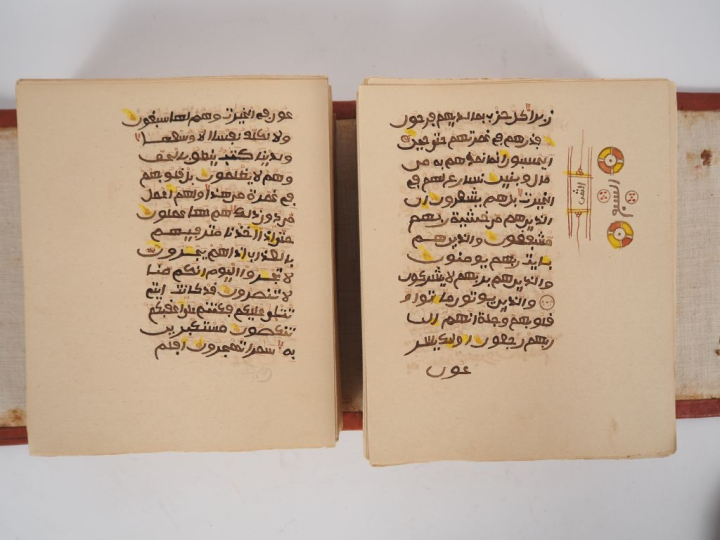 زبرا كل حزب بما لديهم فرحون
فذرهم في غمرتهم حتى حين
ايحسبون انما نمدهم به من
مال وبنين نسارع لهم في
الخيرت بل لا يشعرون ان
الذين هم من خشية ربهم
مشفقون والذين هم
بايت ربهم يومنون
والذين هم بربهم لا يشركون
والذين يوتون ما اتوا و
قلوبهم وجلة انهم الى
ربهم رجعون اوليك يسر
عون
عون في الخيرت وهم لها سبقون
ولا نكلف نفسا الا وسعها
ولدينا كتب ينطق بالحق
وهم لا يظلمون بل قلوبهم
في غمرة من هذا ولهم اعمل
من دون ذلك هم لها عملون
حتى اذا اخذنا مترفيهم
بالعذاب اذا هم يجرون
لا تجروا اليوم انكم منا
لا تنصرون قد كانت ايتي
تتلى عليكم فكنتم على اعقبكم
تنكصون مستكبرين
به سمرا تهجرون افلم